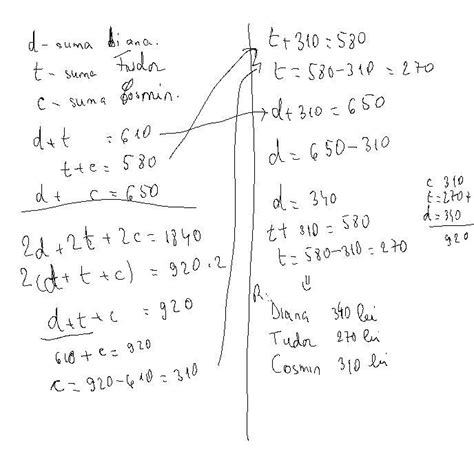 d - suma Diana.
t - suma Tudor
c - suma Cosmin.
d+t = 610
t+c = 580
d+ c = 650
2d+2t+2c = 1840
2(d+t+c) = 920.2
d+t+c = 920
610+c = 920
c = 920-610 = 310
t+310 = 580
t = 580-310 = 270
d+310 = 650
d = 650-310
d = 340
t+310 = 580
t = 580-310 = 270
⇓
R.
Diana 340 lei
Tudor 270 lei
Cosmin 310 lei
c 310
t=270+
d=340
920